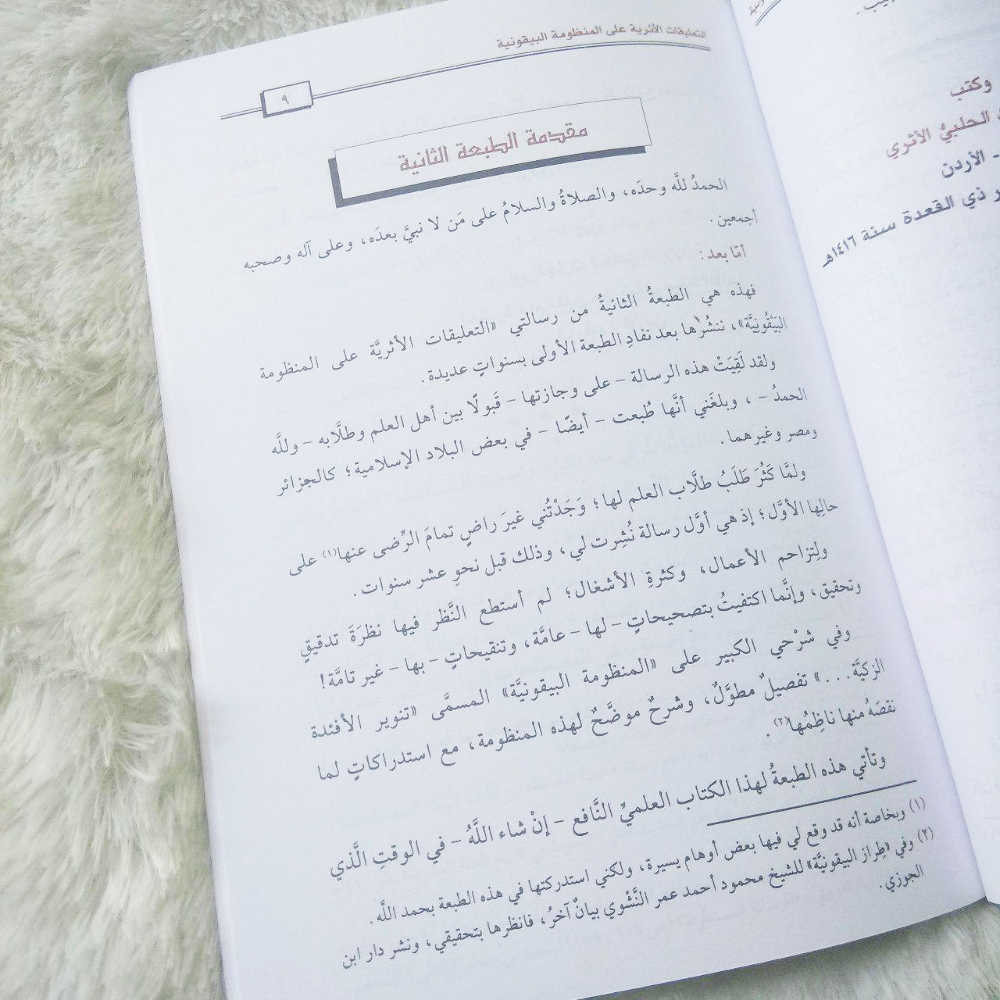 التعليقات الأثرية على المنظومة البيقونية
٩
مقدمة الطبعة الثانية
الحمدُ للَّه وحدَه، والصلاةُ والسلامُ على مَن لا نبيَّ بعدَه، وعلى آله وصحبه
أجمعين.
أمّا بعد:
فهذه هي الطبعةُ الثانيةُ من رسالتي «التعليقات الأثريَّة على المنظومة
البَيْقُونيَّة»، ننشُرُها بعد نفادِ الطبعة الأولى بسنواتٍ عديدة.
ولقد لَقِيَتْ هذه الرسالة – على وجازتها – قَبولًا بين أهل العلم وطلَّابه – وللَّه
الحمدُ –، وبلغَني أنَّها طُبعت – أيضًا – في بعض البلاد الإسلامية؛ كالجزائر
ومصر وغيرهما.
ولمَّا كَثُرَ طَلَبُ طلَّاب العلم لها؛ وَجَدْتُني غيرَ راضٍ تمامَ الرِّضى عنها(١) على
حالِها الأوَّل؛ إذ هي أوَّل رسالة نُشِرت لي، وذلك قبل نحوِ عشر سنوات.
ولِتزاحم الأعمال، وكثرةِ الأشغال؛ لم أستطع النَّظر فيها نظرَةَ تدقيقٍ
وتحقيق، وإنَّما اكتفيتُ بتصحيحاتٍ – لها – عامَّة، وتنقيحاتٍ – بها – غير تامَّة!
وفي شرْحي الكبير على «المنظومة البيقونيَّة» المسمَّى «تنوير الأفئدة
الزكيَّة...» تفصيلٌ مطوَّلٌ، وشرحٌ موضَّحٌ لهذه المنظومة، مع استدراكاتٍ لما
نقصَهُ منها ناظِمُها(٢).
وتأتي هذه الطبعةُ لهذا الكتاب العلميِّ النَّافع – إنْ شاء اللَّهُ – في الوقتِ الَّذي
(١) وبخاصة أنه قد وقع لي فيها بعض أوهام يسيرة، ولكني استدركتها في هذه الطبعة بحمد اللَّه.
(٢) وفي «طِراز البيقونيَّة» للشيخ محمود أحمد عمر النَّشْوي بيانٌ آخرُ، فانظرها بتحقيقي، ونشر دار ابن
الجوزي.
وكتب
الحلبيُّ الأثري
– الأردن
ذي القعدة سنة ١٤١٦هـ